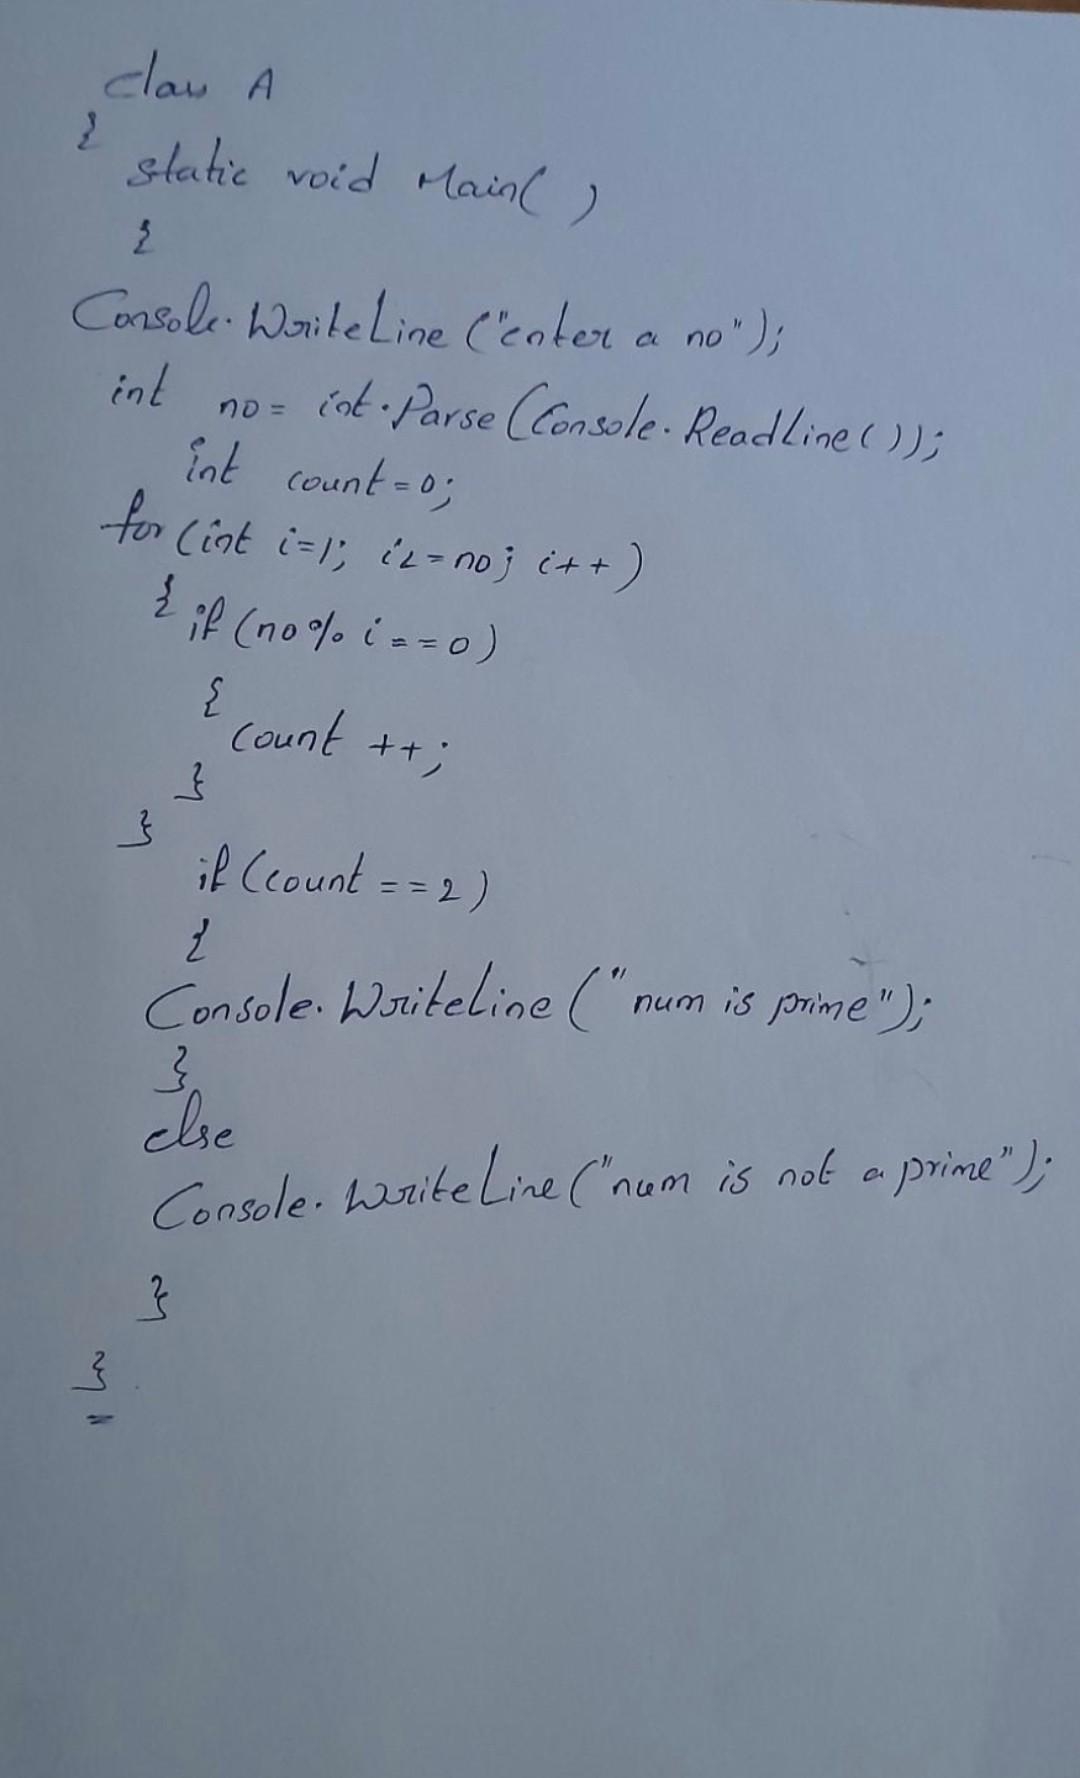 class A
{
static void Main( )
{
Console.WriteLine ("enter a no");
int no = int.Parse (Console.ReadLine());
int count=0;
for (int i=1; i<=no; i++)
{ if (no % i == 0)
{
count ++;
}
}
if (count == 2)
{
Console.WriteLine ("num is prime");
}
else
Console.WriteLine ("num is not a prime");
}
}
=